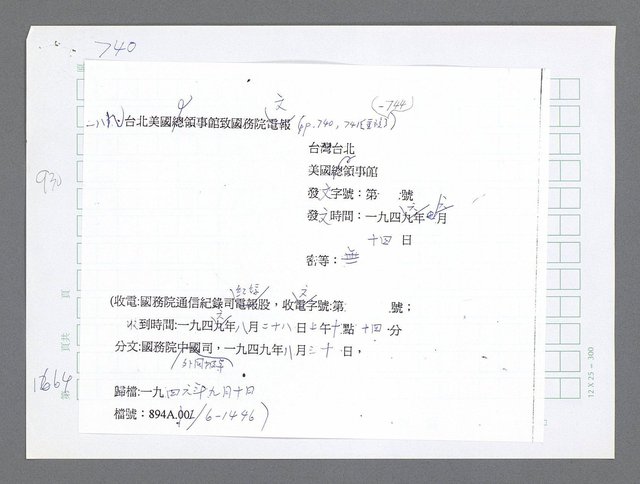 740
(-744)
文
台北美國總領事館致國務院電報 (pp.740, 741
台灣台北
美國總領事館
930
發文字號：第 號
發文時間：一九四九年 月
十四 日
密等：無
頁
紀錄
文
(收電:國務院通信紀錄司電報股，收電字號:第 號；
文
收到時間:一九四九年八月二十八日上午十點十四分
頁共
分文:國務院中國司，一九四九年八月三十日，
外國
1664
第
歸檔:一九四六年九月十日
檔號：894A.00/6-1446)
12 X 25 = 300